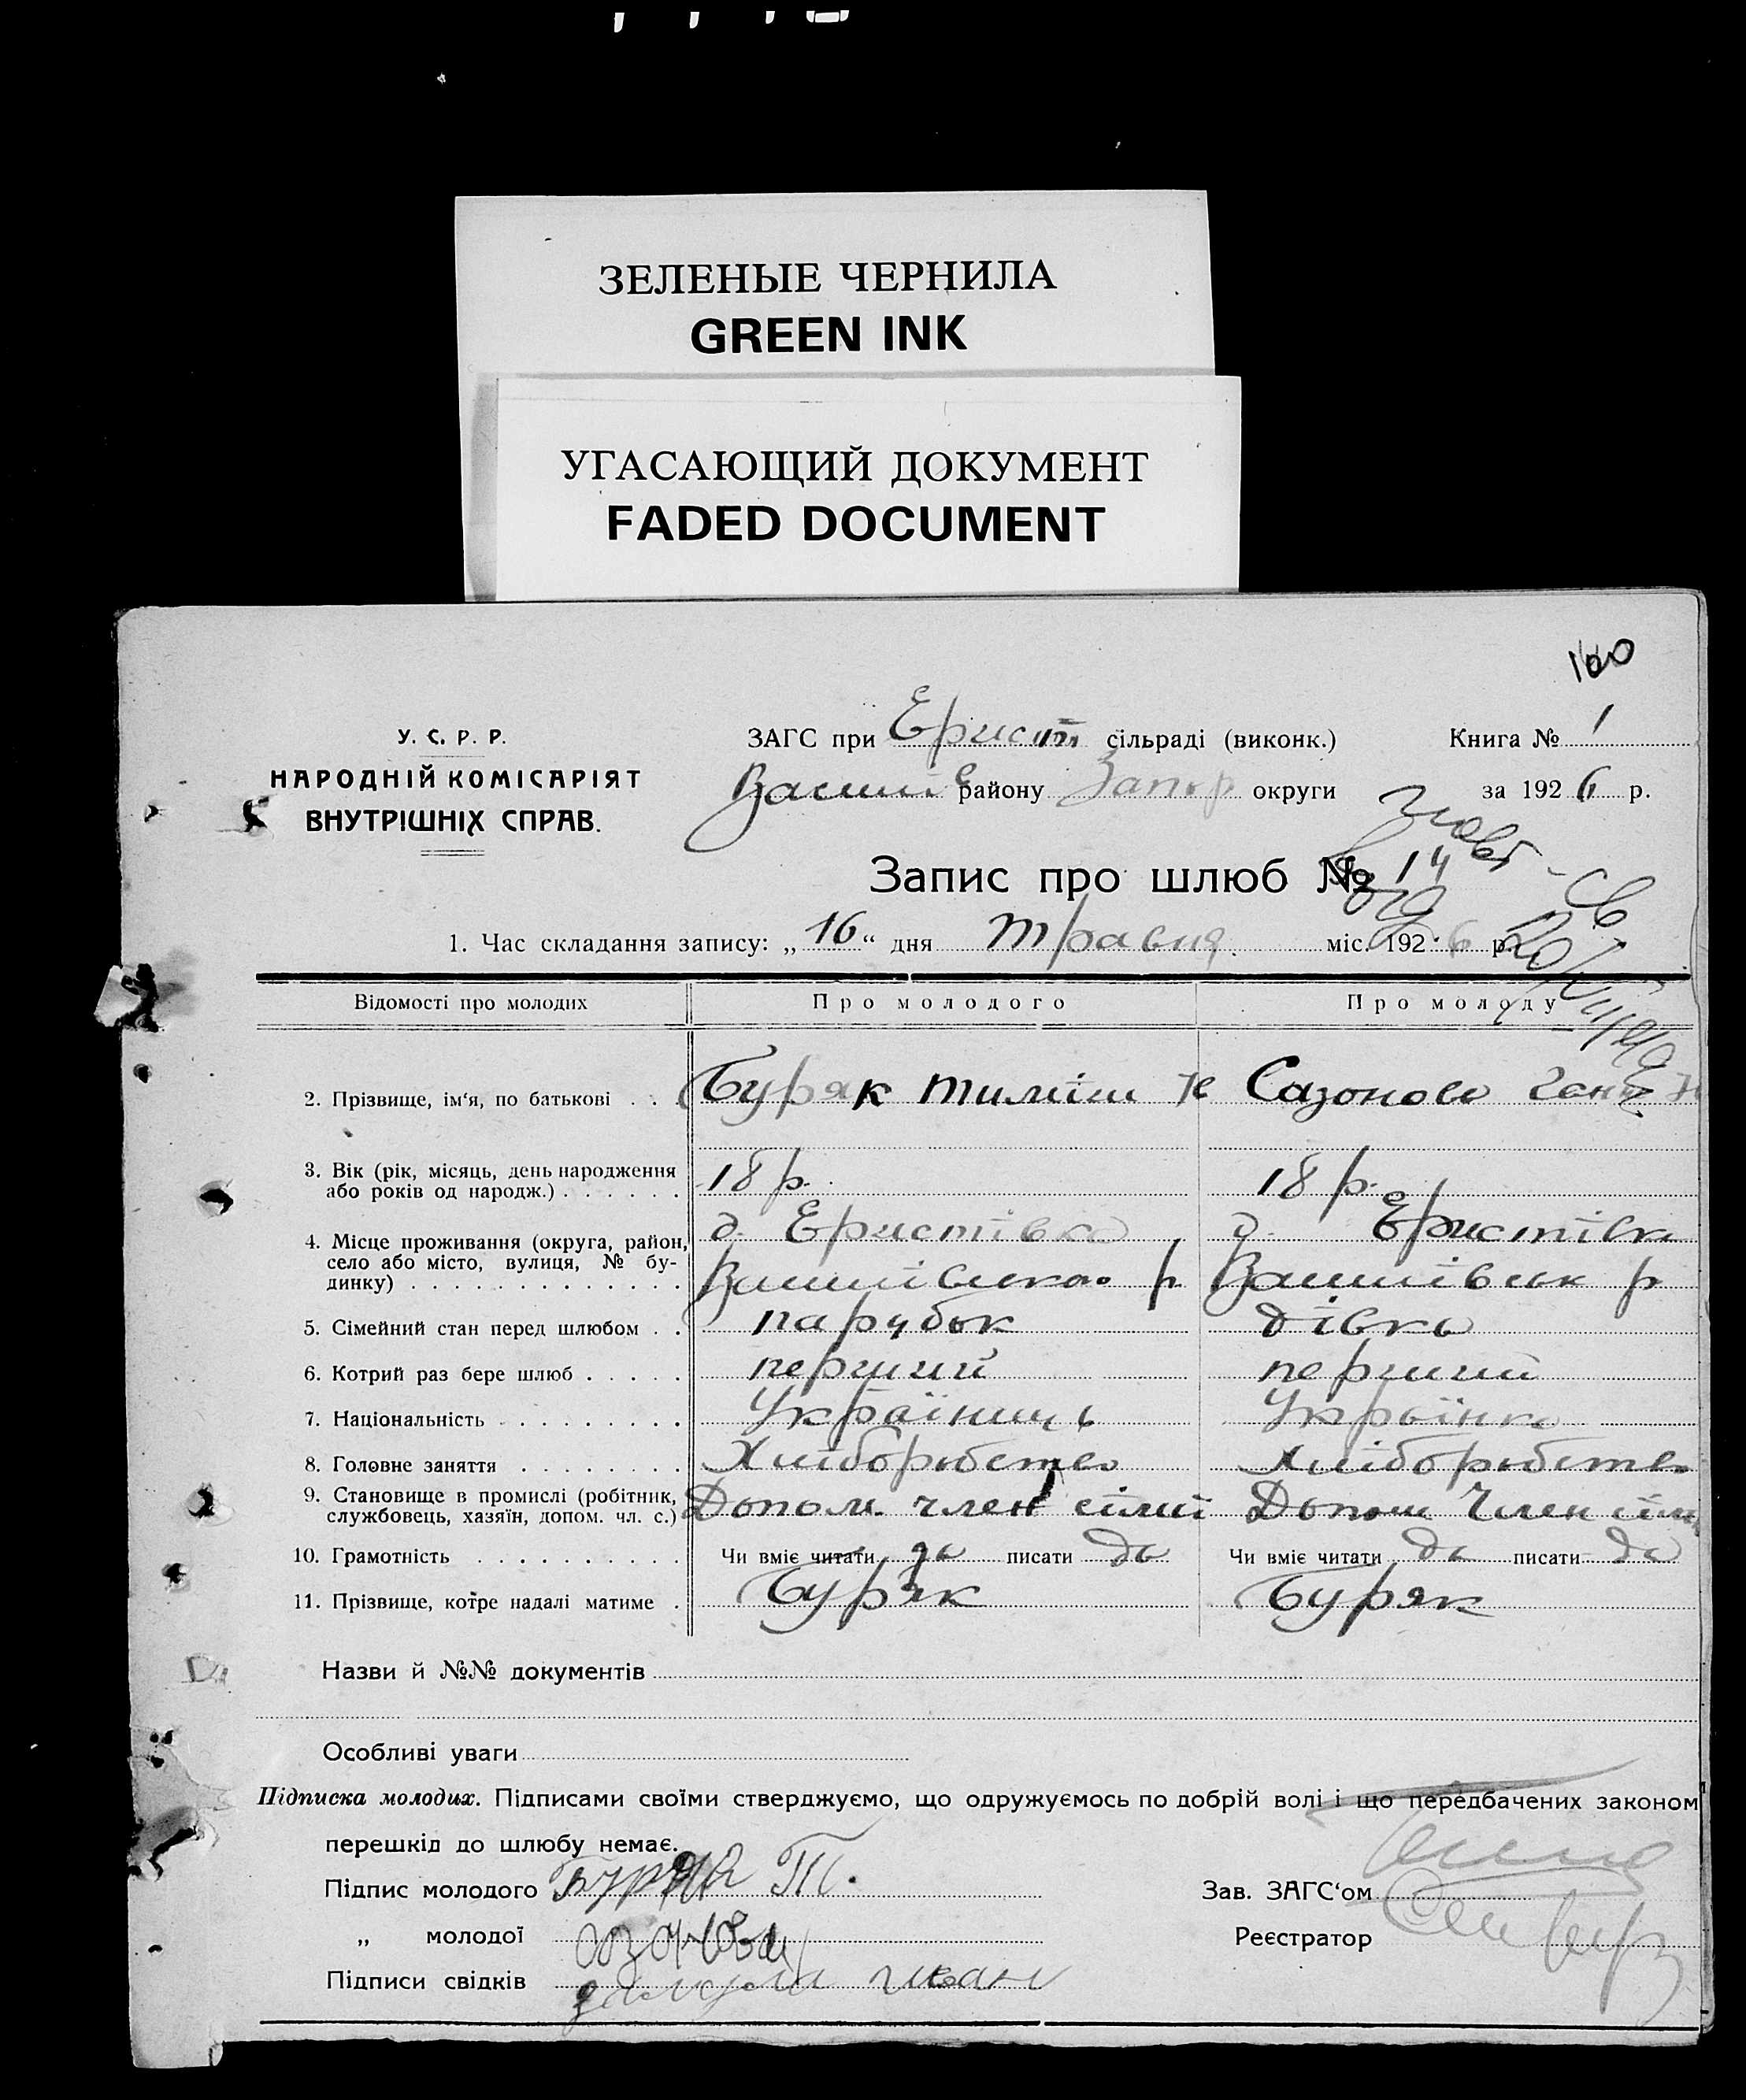 ЗЕЛЕНЫЕ ЧЕРНИЛА
GREEN INK
УГАСАЮЩИЙ ДОКУМЕНТ
FADED DOCUMENT
У. С. Р. Р.
НАРОДНІЙ КОМІСАРІЯТ
ВНУТРІШНІХ СПРАВ.
ЗАГС при Ерист сільраді (виконк.) Книга № 1
району Запор округи за 1926 р.
Запис про шлюб № 14
1. Час складання запису: „16“ дня травня міс. 1926 р.
Відомості про молодих Про молодого Про молоду
2. Прізвище, ім‘я, по батькові . . Буряк Тиміш Сазонова
3. Вік (рік, місяць, день народження
або років од народж.) . . . . . . 18 р. 18 р.
4. Місце проживання (округа, район, д. Еристівка д. Еристівка
село або місто, вулиця, № бу-
динку) . . . . . . . . . . . . р р
5. Сімейний стан перед шлюбом . . парубок дівка
6. Котрий раз бере шлюб . . . . . перший перший
7. Національність . . . . . . . . . Українець Українка
8. Головне заняття . . . . . . . . Хліборобство хліборобство
9. Становище в промислі (робітник,
службовець, хазяїн, допом. чл. с.) Допом. член сімї Допом член сім
10. Грамотність . . . . . . . . . . Чи вміє читати да писати да Чи вміє читати да писати да
11. Прізвище, котре надалі матиме . Буряк Буряк
Назви й №№ документів
Особливі уваги
Підписка молодих. Підписами своїми стверджуємо, що одружуємось по добрій волі і що передбачених законом
перешкід до шлюбу немає.
Підпис молодого Буряк Т. Зав. ЗАГС‘ом
„ молодої Реєстратор
Підписи свідків Иван